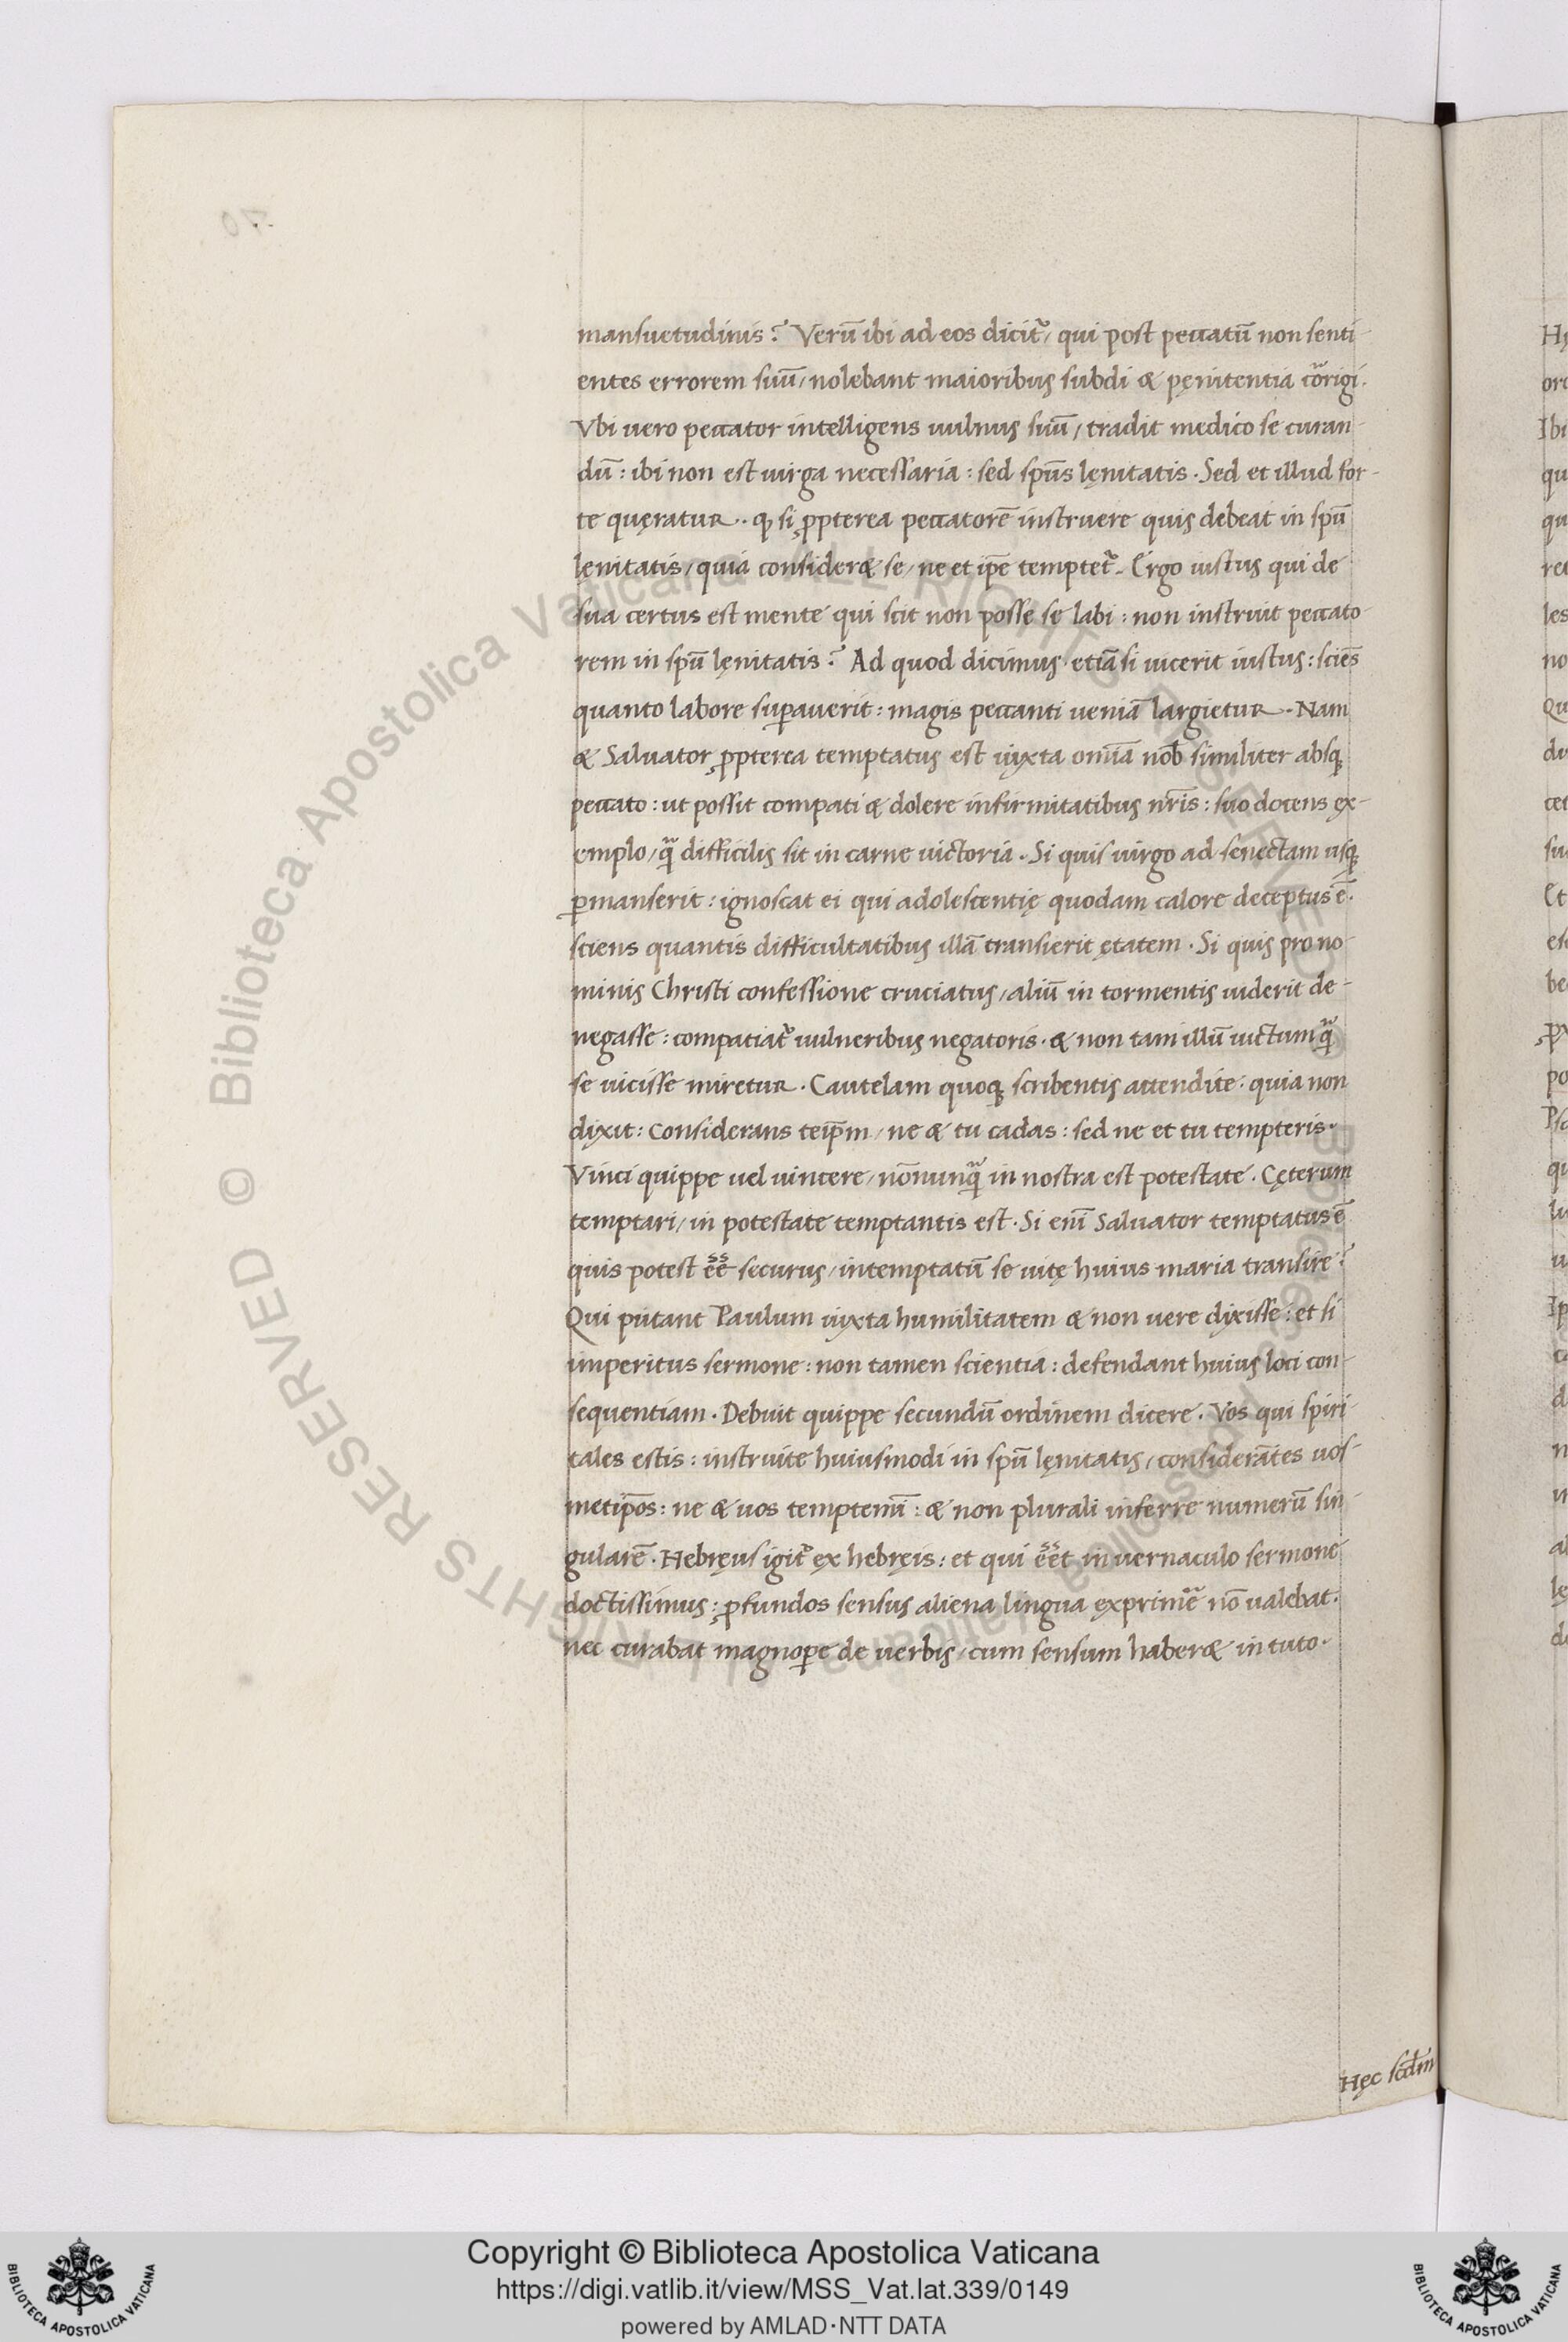 mansuetudinis? Verū ibi ad eos dicit᷑/ qui post peccatū non senti-
entes errorem suū/ nolebant maioribus subdi & pęnitentia cōrigi.
Vbi uero peccator intelligens uulnus suū/ tradit medico se curan-
dū: ibi non est uirga necessaria: sed sp̄us lęnitatis. Sed et illud for-
te quęratur. ꝙ si ꝓpterea peccatorē instruere quis debeat in sp̄u
lenitatis/ quia consider& se/ ne et ip̄e temptet᷑. Ergo iustus qui de
sua certus est mente qui scit non posse se labi: non instruit peccato-
rem in sp̄u lęnitatis? Ad quod dicimus etiā si uicerit iustus: sciēs
quanto labore suꝑauerit: magis peccanti ueniā largietur. Nam
& Saluator ꝓpterea temptatus est iuxta om̄ia nob̄ similiter absqꝫ
peccato: ut possit compati & dolere infirmitatibus nr̄is: suo docens ex-
emplo/ q̄ difficilis sit in carne uictoria. Si quis uirgo ad senectam usqꝫ
ꝑmanserit: ignoscat ei qui adolescentię quodam calore deceptus ē.
sciens quantis difficultatibus illā transierit ętatem. Si quis pro no-
minis Christi confessione cruciatus/ aliū in tormentis uiderit de-
negasse: compatiat᷑ uulneribus negatoris. & non tam illū uictum q̄
se uicisse miretur. Cautelam quoqꝫ scribentis attendite: quia non
dixit: Considerans teip̄m/ ne & tu cadas: sed ne et tu tempteris.
Vinci quippe uel uincere/ nōnunq̄ in nostra est potestate. Cęterum
temptari/ in potestate temptantis est. Si enī Saluator temptatus ē
quis potest ēē securus/ intemptatū se uitę huius maria transire?
Qui putant Paulum iuxta humilitatem & non uere dixisse: et si
imperitus sermone: non tamen scientia: defendant huius loci con-
sequentiam. Debuit quippe secundū ordinem dicere. Vos qui spiri-
tales estis: instruite huiusmodi in sp̄u lęnitatis/ considerātes uos-
metip̄os: ne & uos tempteminī: & non plurali inferre numerū sin-
gularē. Hebręus igit᷑ ex hebręis: et qui ēēt in uernaculo sermone
doctissimus: ꝓfundos sensus aliena lingua exprimē nō ualebat.
nec curabat magnoꝑe de uerbis/ cum sensum haber& in tuto.
Hęc scd̄m
© Biblioteca Apostolica Vaticana ALL RIGHTS RESERVED
© Biblioteca Apostolica Vaticana ALL RIGHTS RESERVED
BIBLIOTECA APOSTOLICA VATICANA
Copyright © Biblioteca Apostolica Vaticana
https://digi.vatlib.it/view/MSS_Vat.lat.339/0149
powered by AMLAD·NTT DATA
BIBLIOTECA APOSTOLICA VATICANA